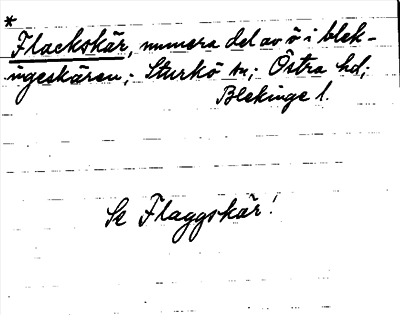 *
Flackskär, numera del av ö i blek-
ingeskären; Sturkö sn; Östra hd;
Blekinge l.
Se Flaggskär!